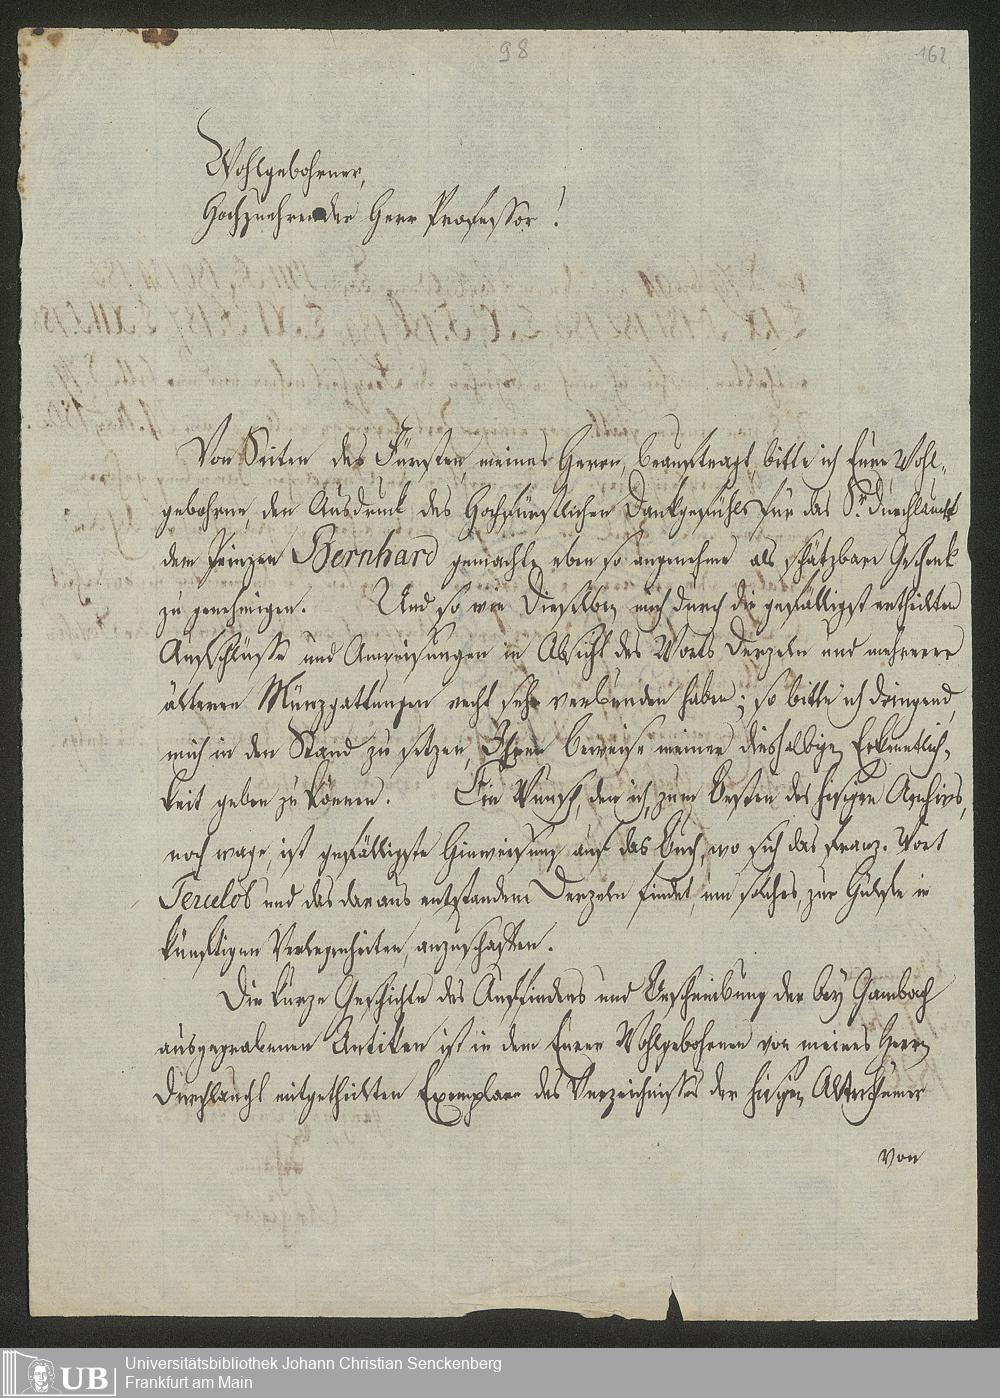 98
162
Wohlgebohrner,
Hochzuehrender Herr Professor!
Von Seiten des Fürsten, meines Herrn, beauftragt, bitte ich Euer Wohl-
gebohrne, den Ausdruck des Hochfürstlichen Dankgefühls für das Sr. Durchlaucht
dem Prinzen Bernhard gemachte eben so angenehme als schätzbare Geschenk
zu genehmigen. Und so wie Dieselben mich durch die gefälligst ertheilten
Aufschlüsse und Anweisungen in Absicht des Worts Derzeln und mehrerer
älteren Münzgattungen recht sehr verbunden haben; so bitte ich dringend,
mich in den Stand zu setzen, Ihnen Beweise meiner diesfalligen Erkenntlich-
keit geben zu können. Ein Wunsch, den ich, zum Besten des hiesigen Archivs,
noch wage, ist gefälligste Hinweisung auf das Buch, wo sich das franz. Wort
Tercelos und das daraus entstandene Derzeln findet, um solches, zur Hülfe in
künftigen Verlegenheiten, anzuschaffen.
Die kurze Geschichte des Auffindens und Beschreibung der bey Gambach
ausgegrabenen Antiken ist in dem Euer Wohlgebohrnen von meines Herrn
Durchlaucht mitgetheilten Exemplare des Verzeichnisses der hiesigen Alterthümer
von
UB
Universitätsbibliothek Johann Christian Senckenberg
Frankfurt am Main